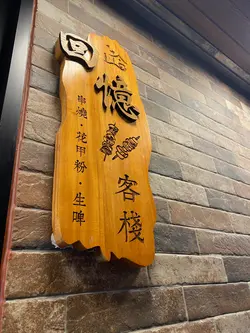 回
憶客棧
串燒·花甲粉·生啤